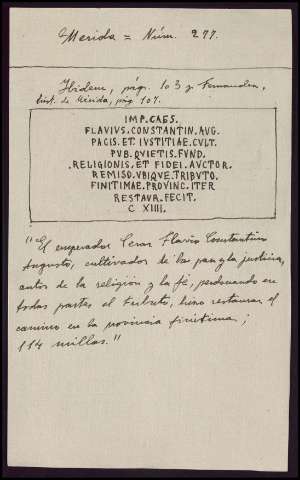 Merida = Núm. 277.
Ibidem, pág. 103 y Fernandez,
hist. de Mérida, pág. 107.
IMP. CAES.
FLAVIVS. CONSTANTIN. AVG.
PACIS. ET IVSTITIAE. CVLT.
PVB. QVIETIS. FVND.
.RELIGIONIS, ET FIDEI. AVCTOR.
REMISO. VBIQVE. TRIBVTO.
FINITIMAE. PROVINC. ITER
RESTAVR. FECIT.
C XIIII.
"El emperador Cesar Flavio Constantino
Augusto, cultivador de la paz y la justicia,
autor de la religión y la fé, perdonando en
todas partes el tributo, hizo restaurar el
camino en la provincia finitima;
114 millas."